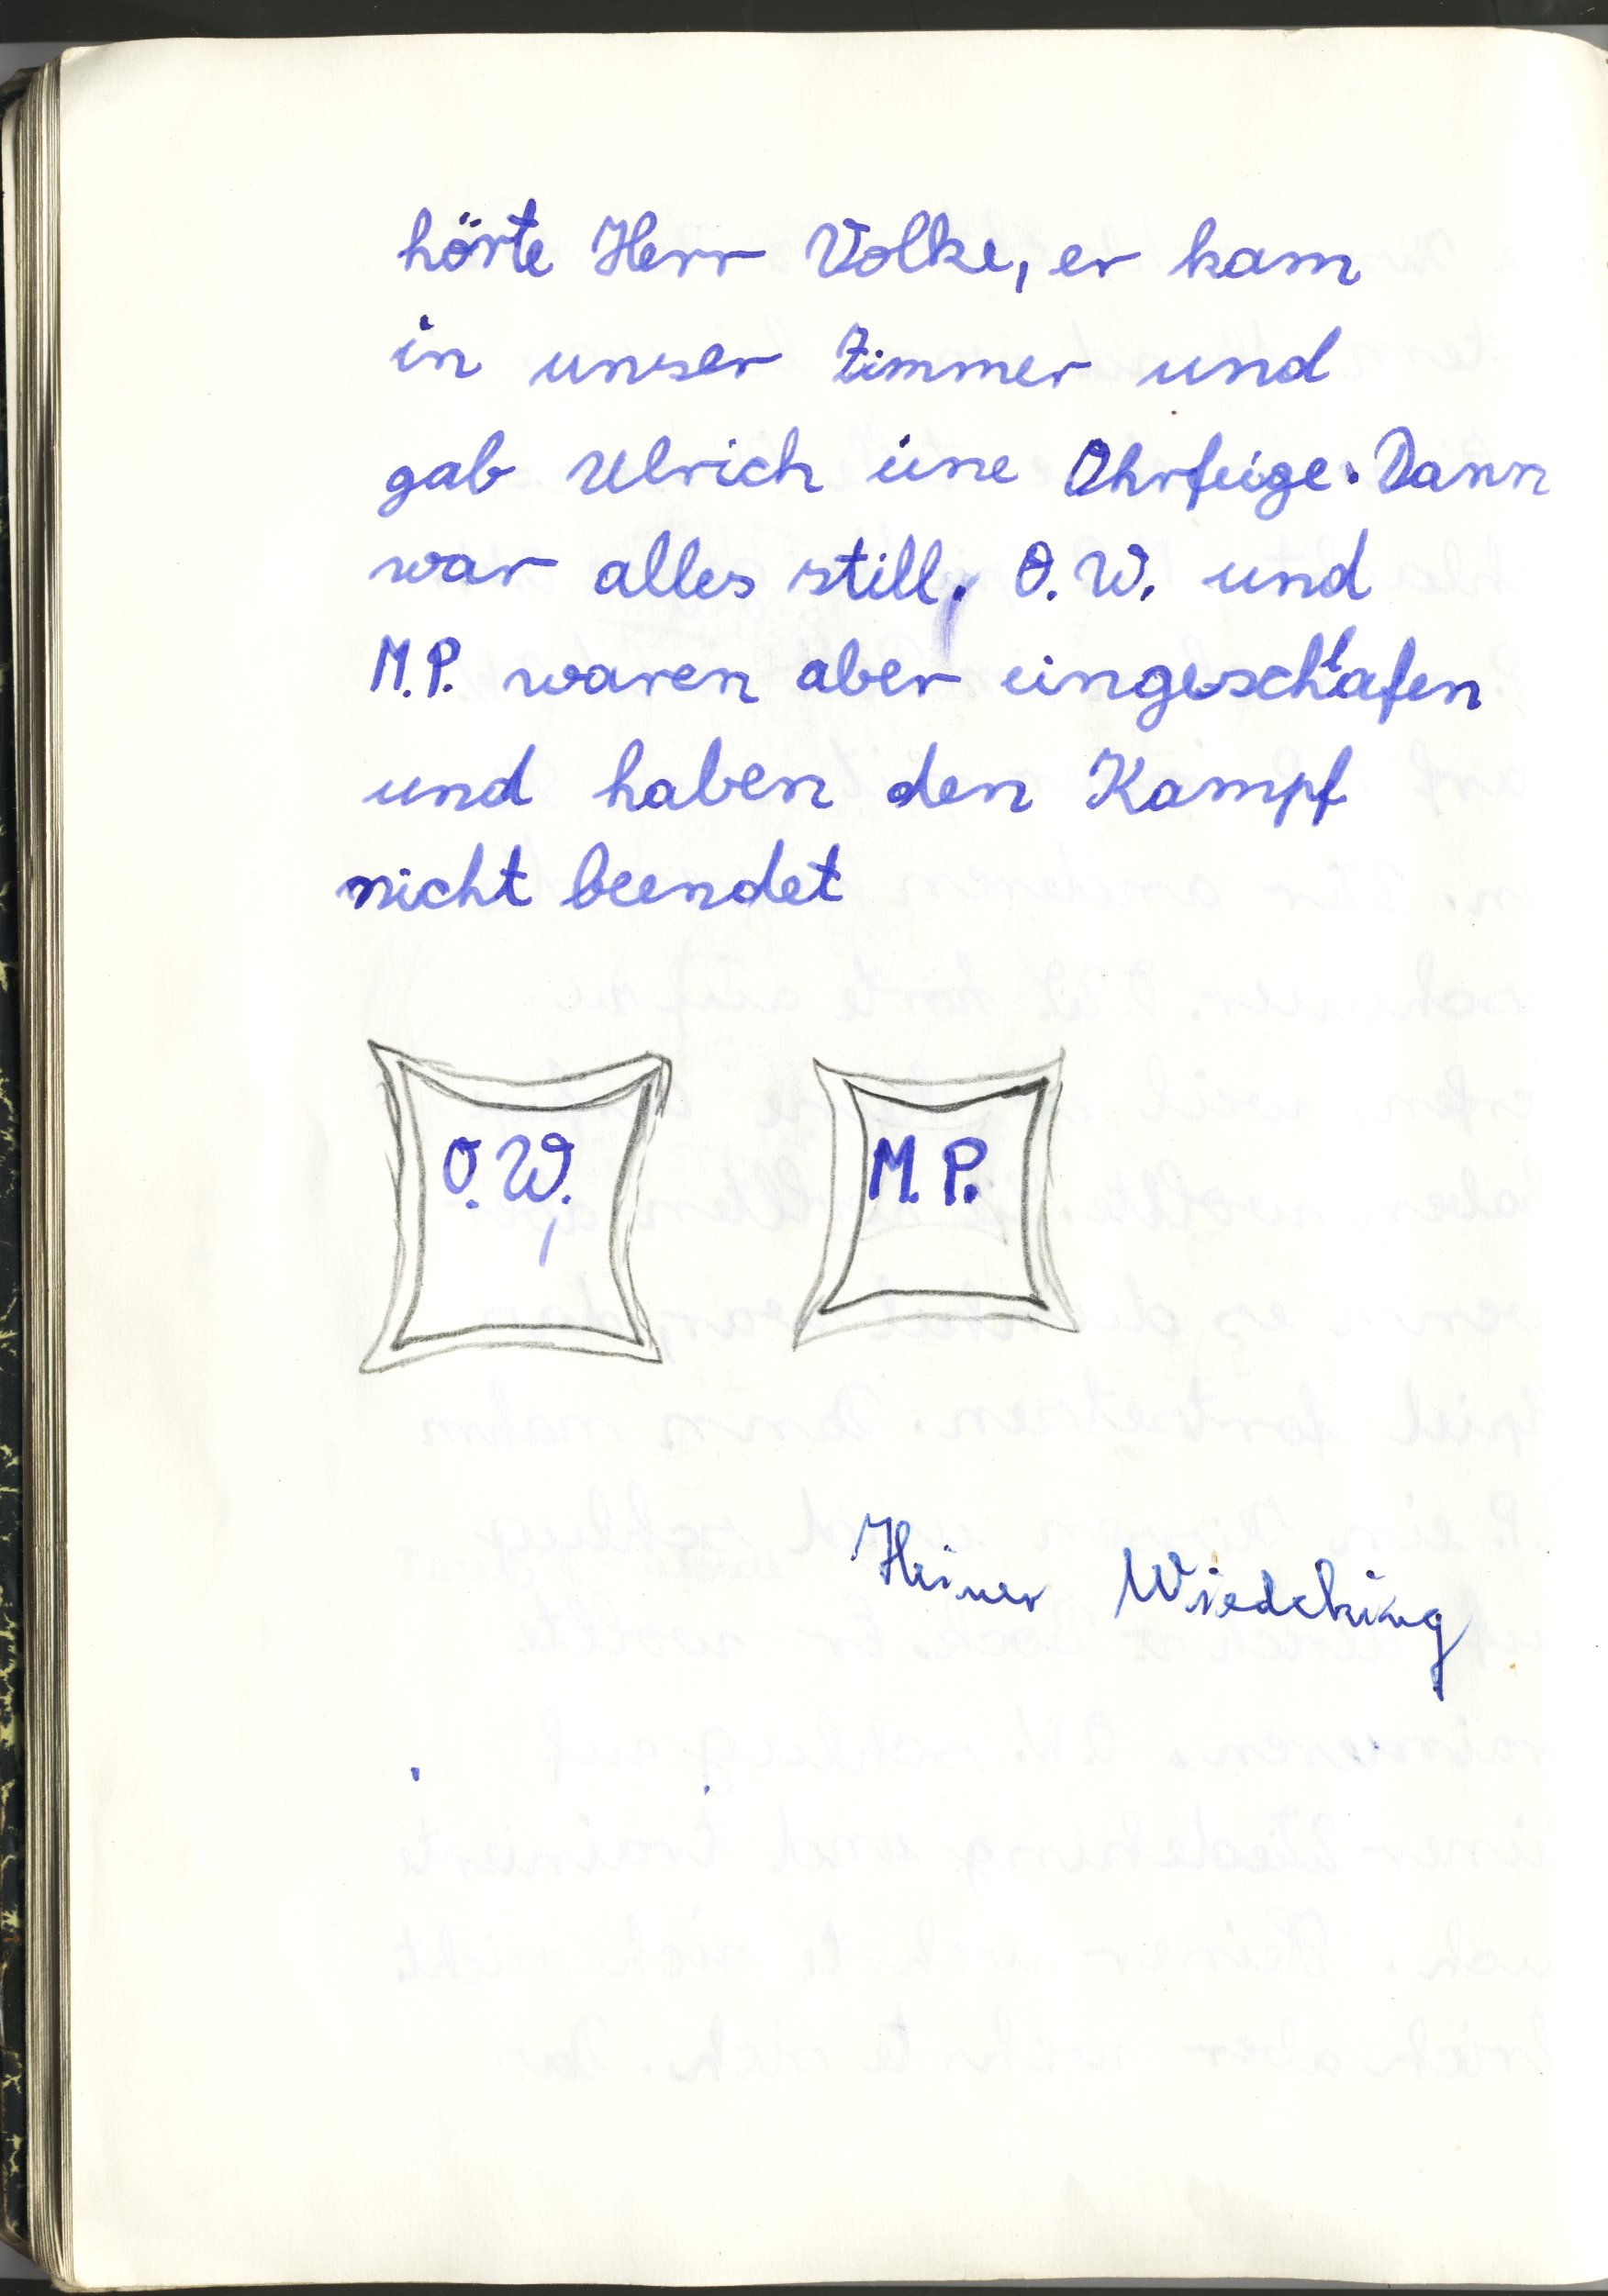 hörte Herr Volke, er kam
in unser Zimmer und
gab Ulrich eine Ohrfeige. Dann
war alles still. O.W. und
M.P. waren aber eingeschlafen
und haben den Kampf
nicht beendet
O.W.
M.P.
Heiner Wiedeking